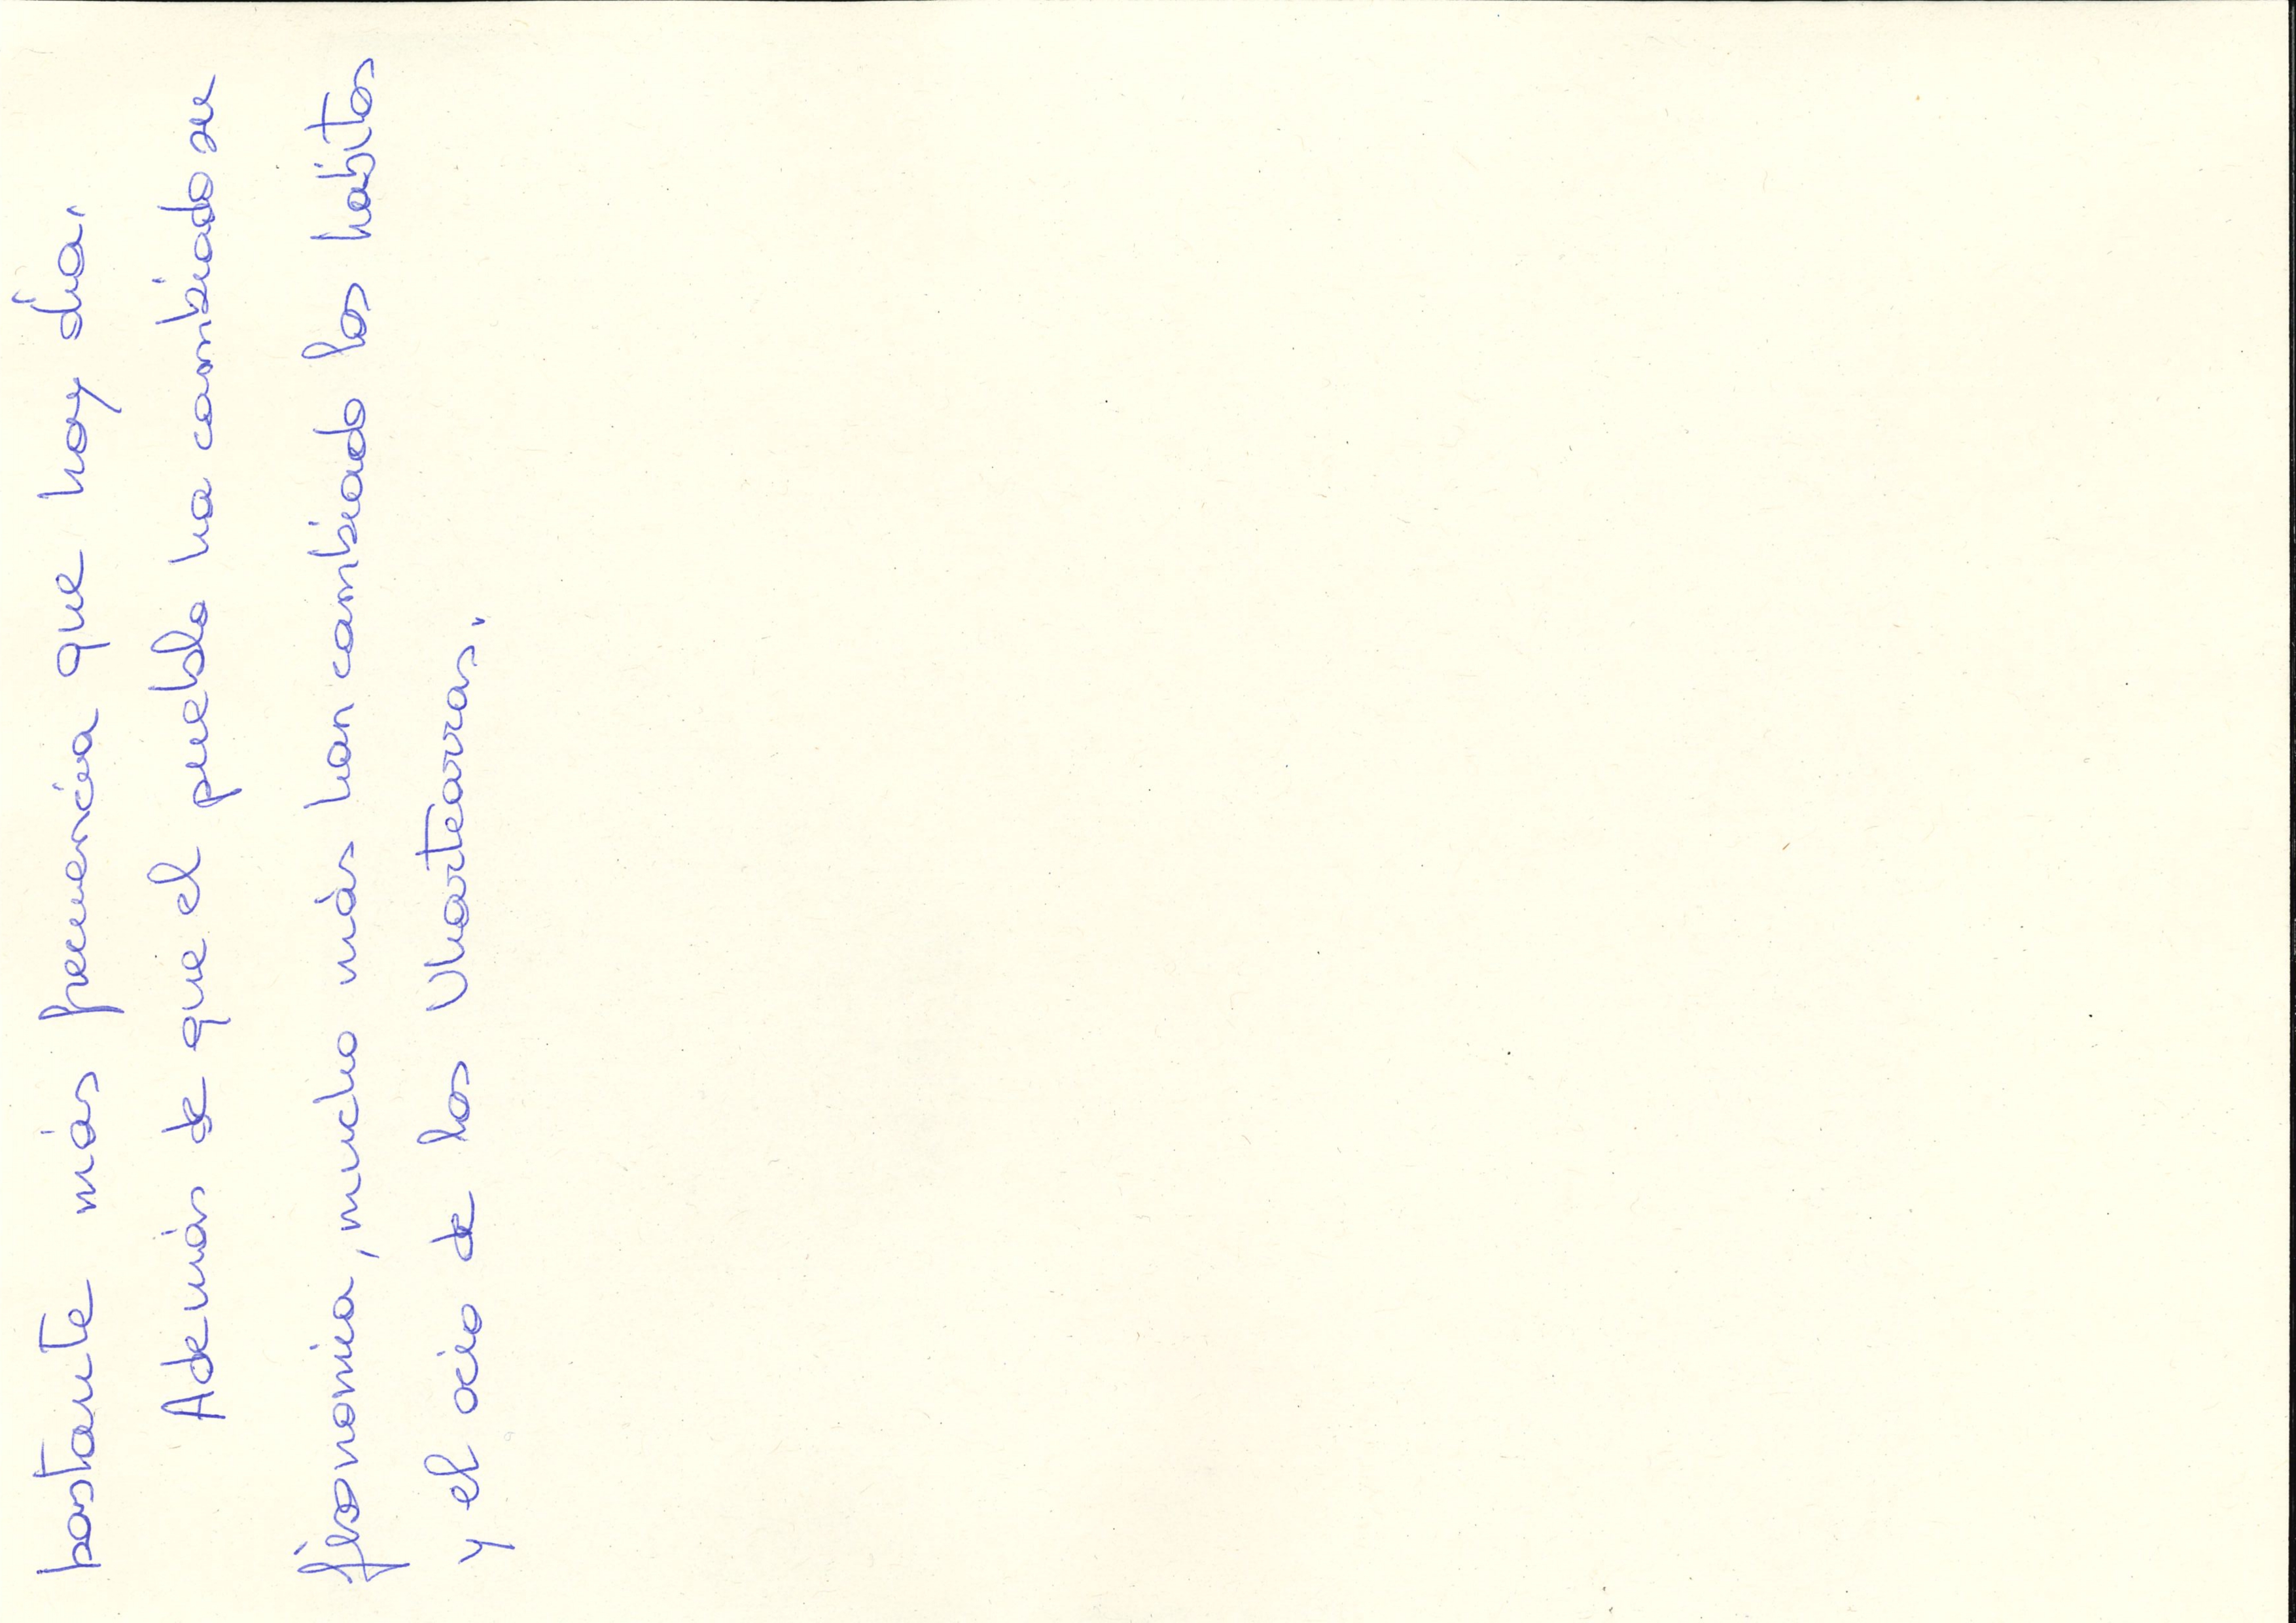 bastante más frecuencia que hoy día.
Además de que el pueblo ha cambiado su
fisonomia, mucho más han cambiado los habitos
y el ocio de los Uhartearras.